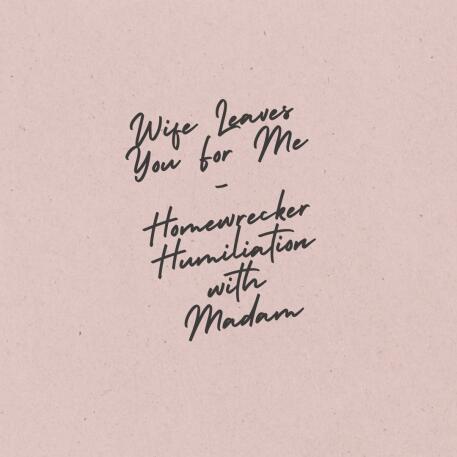 Wife Leaves
You for Me
-
Homewrecker
Humiliation
with
Madam